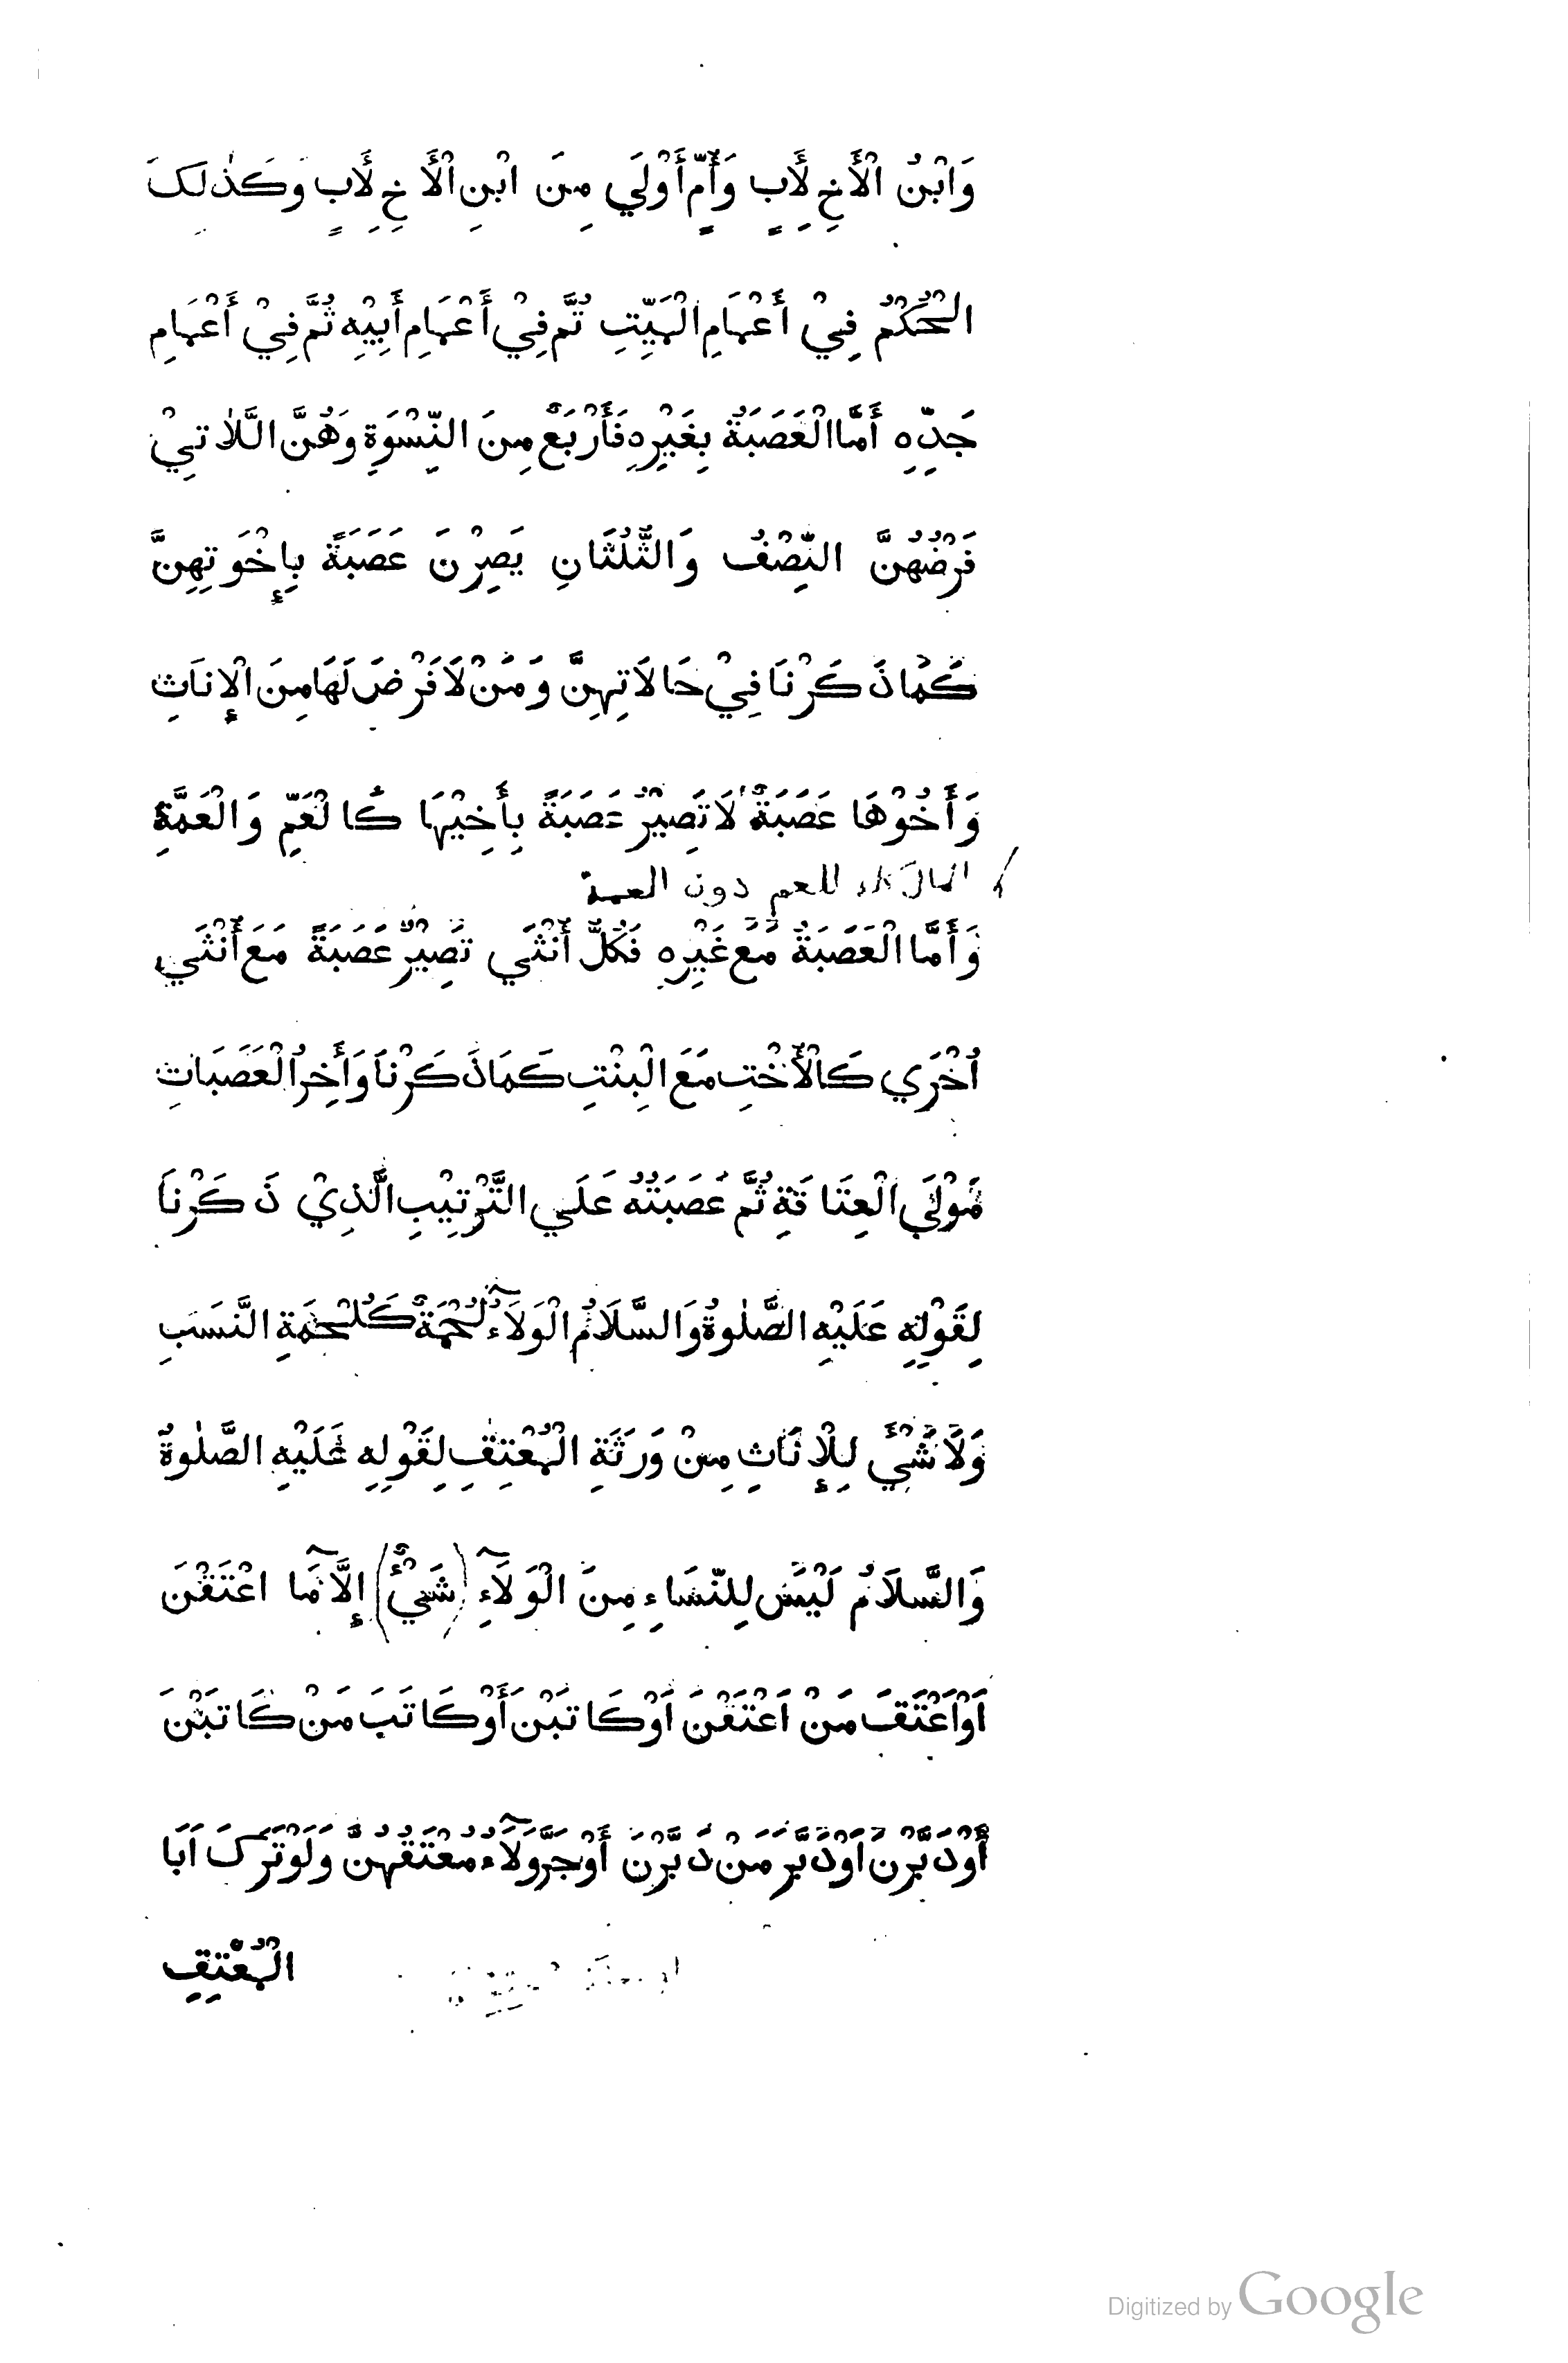 وَابْنُ الْأَخِ لِأَبٍ وَأُمٍّ أَوْلَي مِنَ ابْنِ الْأَخِ لِأَبٍ وَكَذٰلِکَ
الْحُكْمُ فِيْ أَعْمَامِ الْمَيِّتِ ثُمَّ فِيْ أَعْمَامِ أَبِيْهِ ثُمَّ فِيْ أَعْمَامِ
جَدِّهِ أَمَّا الْعَصَبَةُ بِغَيْرِهِ فَأَرْبَعٌ مِنَ النِّسْوَةِ وَهُنَّ اللَّاتِيْ
فَرْضُهُنَّ النِّصْفُ وَالثُّلُثَانِ يَصِرْنَ عَصَبَةً بِإِخْوَتِهِنَّ
كَمَا ذَكَرْنَا فِيْ حَالَاتِهِنَّ وَمَنْ لَا فَرْضَ لَهَا مِنَ الْإِنَاثِ
وَأَخُوْهَا عَصَبَةٌ لَا تَصِيْرُ عَصَبَةً بِأَخِيْهَا كَالْعَمِّ وَالْعَمَّةِ
المال كله للعم دون العمة
وَأَمَّا الْعَصَبَةُ مَعَ غَيْرِهِ فَكُلُّ أُنْثَي تَصِيْرُ عَصَبَةً مَعَ أُنْثَي
اُخْرَي كَالْأُخْتِ مَعَ الْبِنْتِ كَمَا ذَكَرْنَا وَأَخِرُ الْعَصَبَاتِ
مَوْلَي الْعِتَاقَةِ ثُمَّ عَصَبَتُهُ عَلَي التَّرْتِيْبِ الَّذِيْ ذَكَرْنَا
لِقَوْلِهِ عَلَيْهِ الصَّلٰوةُ وَالسَّلَامُ الْوَلَآءُ لُحْمَةٌ كَلُحْمَةِ النَّسَبِ
وَلَا شَيْءَ لِلْإِنَاثِ مِنْ وَرَثَةِ الْمُعْتِقِ لِقَوْلِهِ عَلَيْهِ الصَّلٰوةُ
وَالسَّلَامُ لَيْسَ لِلنِّسَاءِ مِنَ الْوَلَآءِ (شَيْءٌ) إِلَّا مَا اعْتَقْنَ
اَوْ اَعْتَقَ مَنْ اَعْتَقْنَ اَوْ كَاتَبْنَ أَوْ كَاتَبَ مَنْ كَاتَبْنَ
أَوْ دَبَّرْنَ اَوْ دَبَّرَ مَنْ دَبَّرْنَ أَوْ جَرَّ وَلَآءً مُعْتَقُهُنَّ وَلَوْ تَرَكَ اَبَا
الْمُعْتِقِ
Digitized by Google